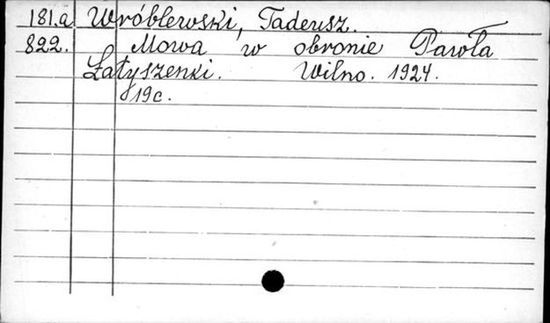 181.a Wróblewski, Tadeusz.
822. Mowa w obronie Pawła
Łatyszenki. Wilno. 1924.
19c.